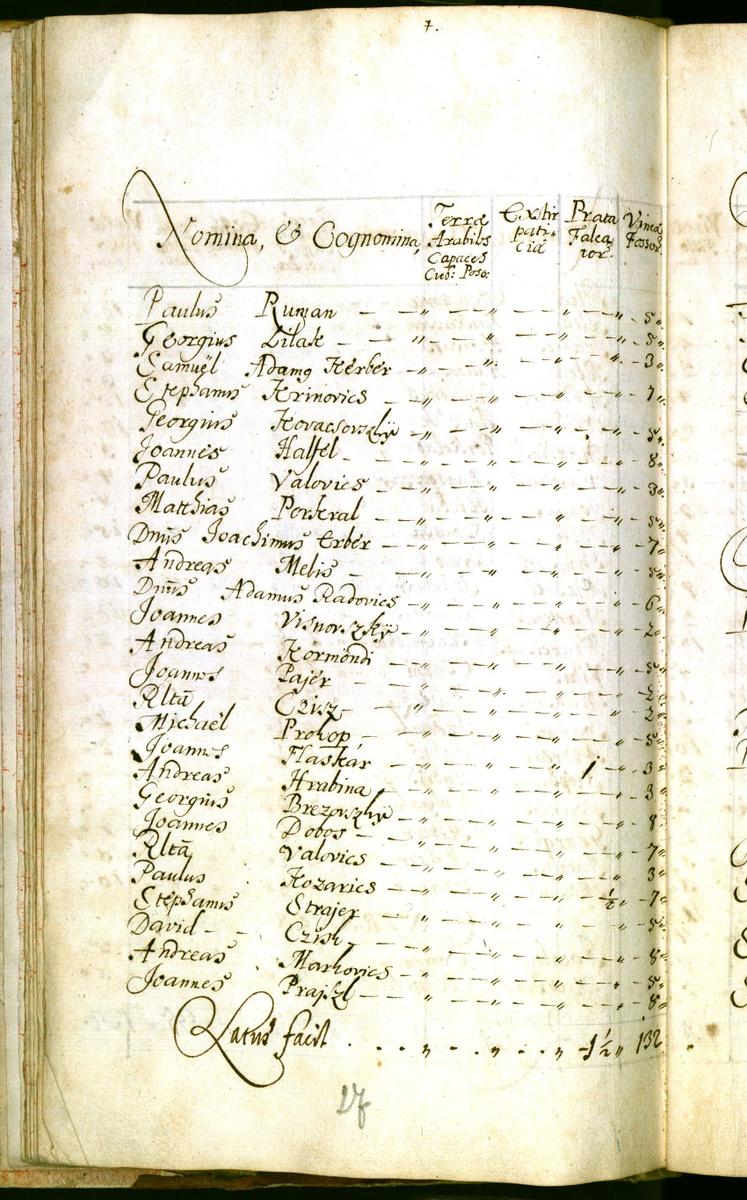 7.
Nomina, & Cognomina, Terræ Arabiles Capaces Cub: Poso: Exstirpaticia Prata Falcator. Vineæ Fossor.
Paulus Ruman — „ — „ — „ — „ — 5„
Georgius Lilak — „ — „ — „ — „ — 5„
Samuël Adamg Kerber — „ — „ — „ — „ — 3„
Stephanus Krinovics — „ — „ — „ — „ — 7„
Georgius Kovacsovszkÿ — „ — „ — „ — „ — 5„
Joannes Halfel — „ — „ — „ — „ — 8„
Paulus Valovics — „ — „ — „ — „ — 3„
Matthias Porkral — „ — „ — „ — „ — 5„
Dnus Joachimus Erber — „ — „ — „ — „ — 7„
Andreas Melis — „ — „ — „ — „ — 5„
Dnus Adamus Radovics — „ — „ — „ — „ — 6„
Joannes Visnovszkÿ — „ — „ — „ — „ — 2„
Andreas Körmöndi — „ — „ — „ — „ — 5„
Joannes Pajer — „ — „ — „ — „ — 2„
Rlta Czisz — „ — „ — „ — „ — 2„
Michaël Prokop — „ — „ — „ — „ — 5„
Joannes Flaskár — „ — „ — „ 1 „ — 3„
Andreas Hrabina — „ — „ — „ — „ — 3„
Georgius Brezovszkÿ — „ — „ — „ — „ — 8„
Joannes Dobos — „ — „ — „ — „ — 7„
Rlta Valovics — „ — „ — „ — „ — 3„
Paulus Kozarics — „ — „ — „ ½„ — 7„
Stephanus Strajer — „ — „ — „ — „ — 5„
David — Czisk — „ — „ — „ — „ — 8„
Andreas Markovics — „ — „ — „ — „ — 5„
Joannes Prajszl — „ — „ — „ — „ — 8„
Latus facit . . . „ . . . . . „ 1½„ 132
27